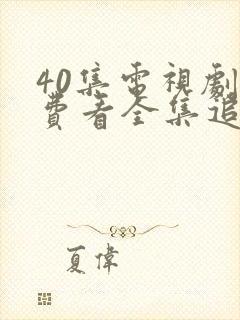 40集電視劇
費看全集追
夏偉